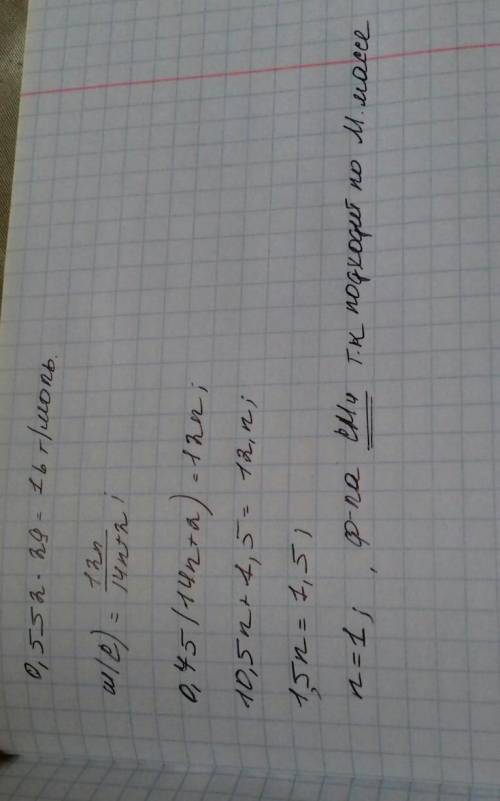 0,552 · 29 = 16 г/моль.
w(C) = 12n / 14n+2;
0,75(14n+2) = 12n;
10,5n + 1,5 = 12n;
1,5n = 1,5;
n = 1; , ф-ла CH4 т.к подходит по М. массе